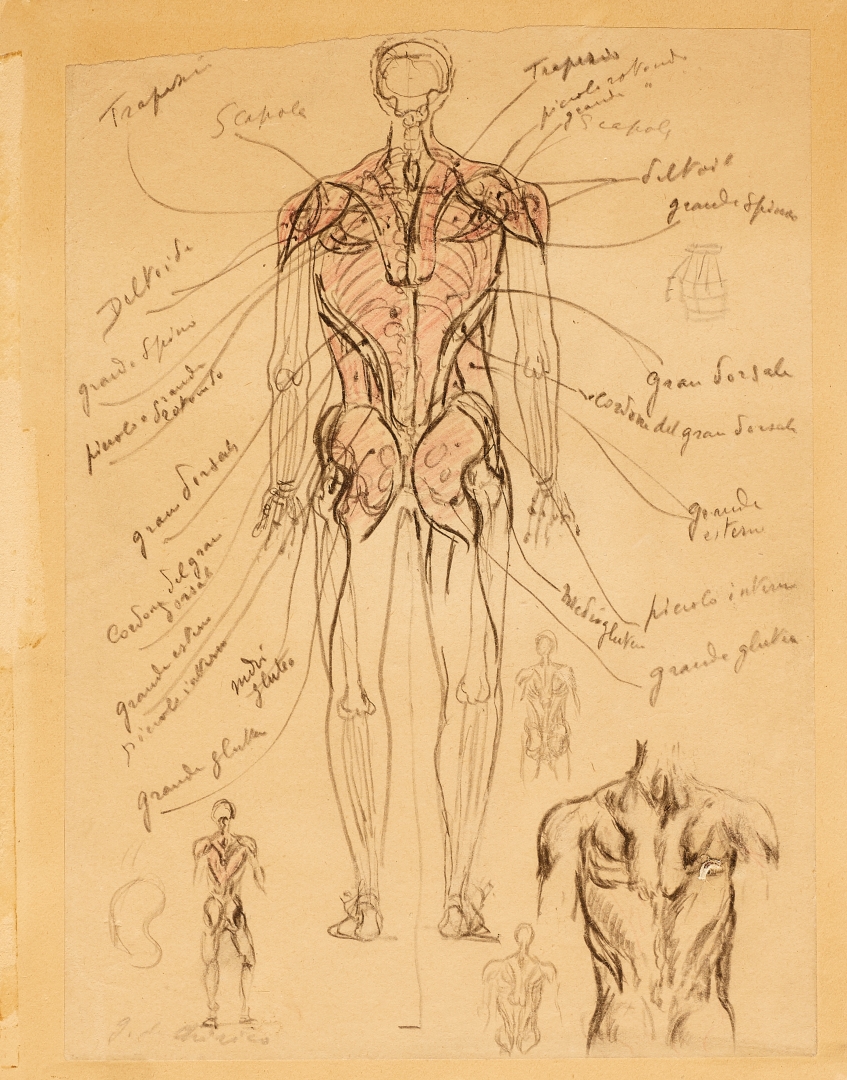 Trapezi
Scapola
Deltoide
grande Spino
piccolo e grande
rotondo
gran dorsale
Cordone del gran
dorsale
grande esterno
piccolo interno
medio
gluteo
grande gluteo
Trapezio
piccolo rotondo
grande "
Scapola
deltoid
grande Spinoso
gran dorsale
Cordone del gran dorsale
grande
esterno
piccolo interno
Mediogluteo
grande gluteo